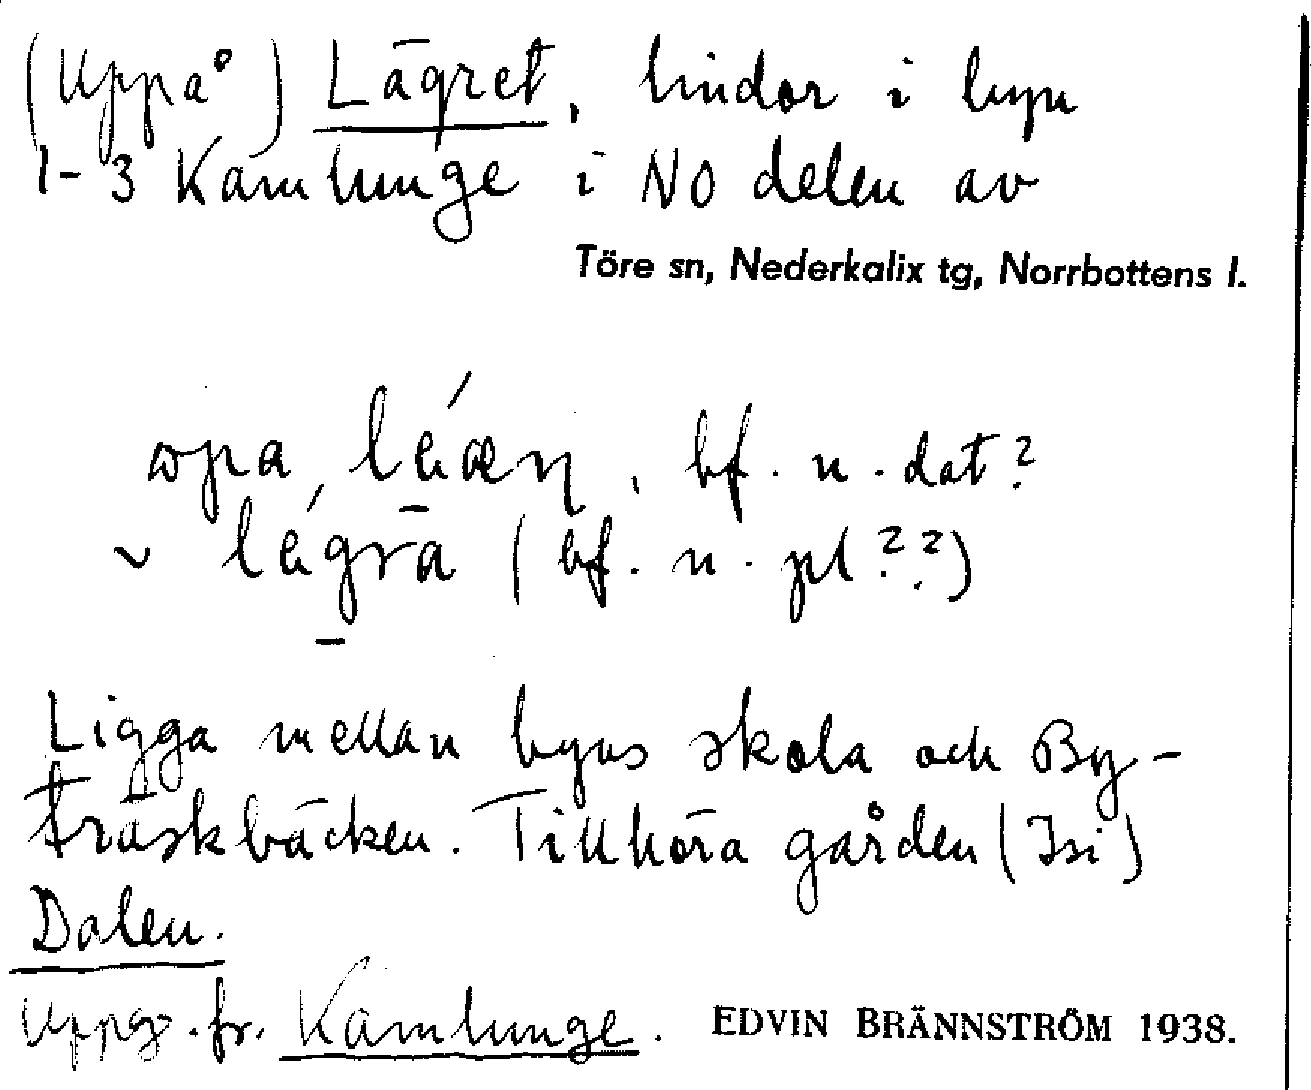 (Uppå) Lägret, lindor i byn
1-3 Kamlunge i NO delen av
Töre sn, Nederkalix tg, Norrbottens l.
bf. n. dat?
(bf. n. pl??)
Ligga mellan byns skola och By-
träskbäcken. Tillhöra gården (Isi)
Dalen.
Uppg. fr. Kamlunge. EDVIN BRÄNNSTRÖM 1938.